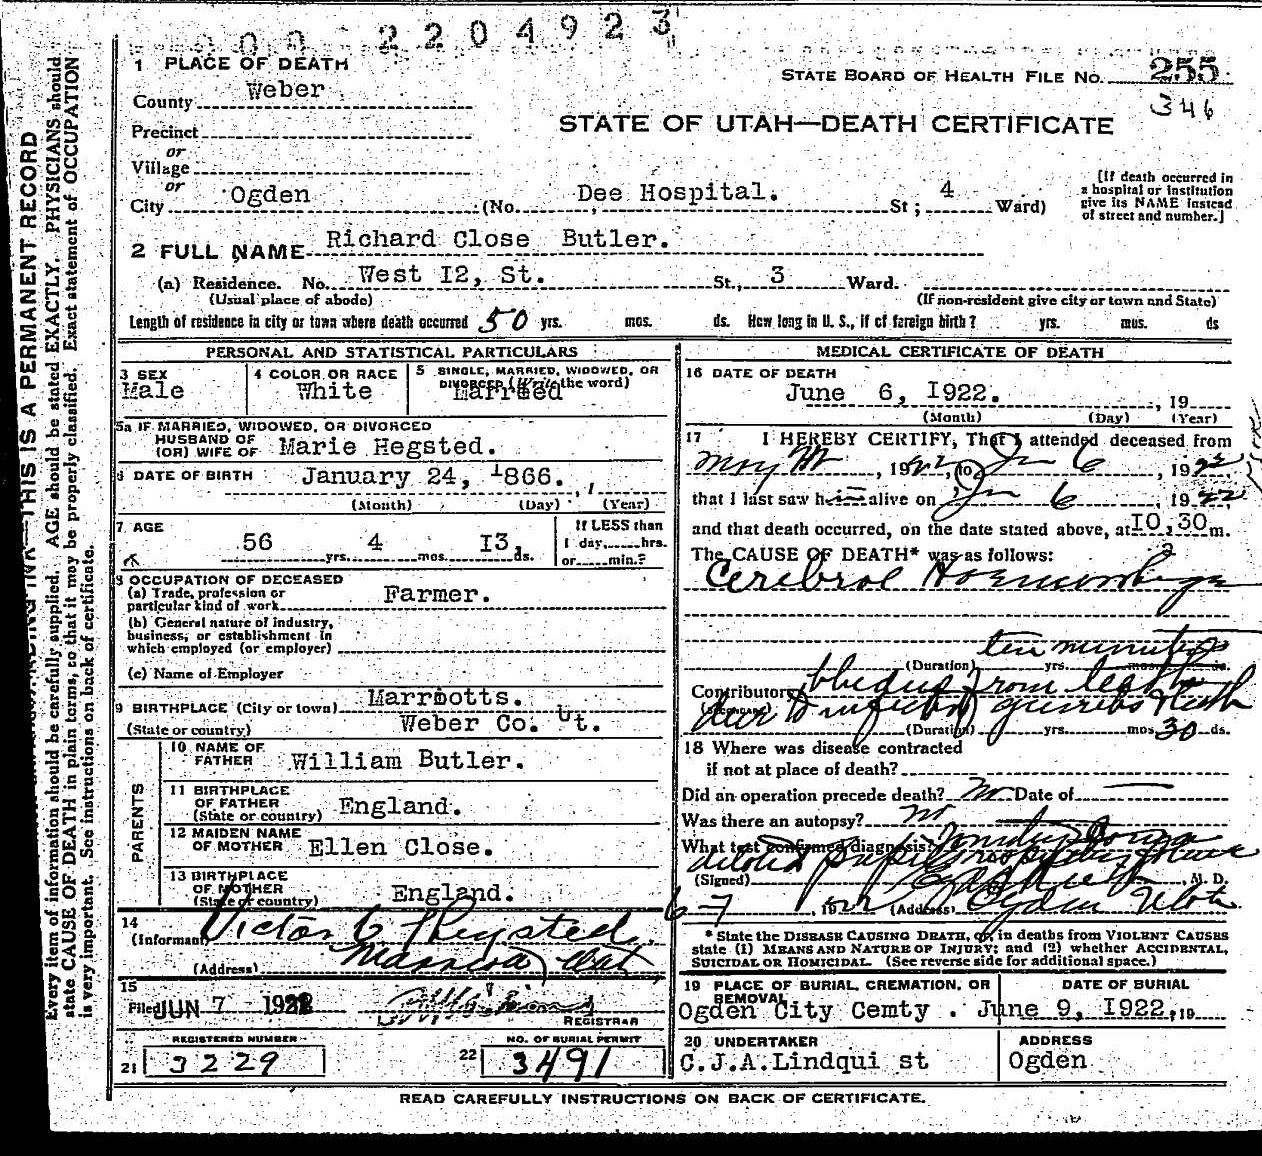 2204923
1 PLACE OF DEATH
STATE BOARD OF HEALTH FILE NO. 255
County Weber
346
STATE OF UTAH—DEATH CERTIFICATE
Precinct
or
Village
or
City Ogden (No. Dee Hospital. St; 4 Ward)
[If death occurred in
a hospital or institution
give its NAME instead
of street and number.]
2 FULL NAME Richard Close Butler.
(a) Residence. No. West I2, St. St., 3 Ward.
(Usual place of abode) (If non-resident give city or town and State)
Length of residence in city or town where death occurred 50 yrs. mos. ds. How long in U. S., if of foreign birth? yrs. mos. ds
PERSONAL AND STATISTICAL PARTICULARS
3 SEX
Male
4 COLOR OR RACE
White
5 SINGLE, MARRIED, WIDOWED, OR
DIVORCED (Write the word)
Married
5a IF MARRIED, WIDOWED, OR DIVORCED
HUSBAND OF
(OR) WIFE OF Marie Hegsted.
6 DATE OF BIRTH January 24, 1866.
(Month) (Day) (Year)
7 AGE
56 yrs. 4 mos. I3, ds.
If LESS than
1 day, hrs.
or min.?
8 OCCUPATION OF DECEASED
(a) Trade, profession or
particular kind of work Farmer.
(b) General nature of industry,
business, or establishment in
which employed (or employer)
(c) Name of Employer
9 BIRTHPLACE (City or town) Marriotts.
(State or country) Weber Co. Ut.
PARENTS
10 NAME OF
FATHER William Butler.
11 BIRTHPLACE
OF FATHER
(State or country) England.
12 MAIDEN NAME
OF MOTHER Ellen Close.
13 BIRTHPLACE
OF MOTHER
(State or country) England.
14
(Informant) Victor C Hegsted.
(Address)
15
Filed JUN 7 1922
REGISTRAR
REGISTERED NUMBER
21 3229
NO. OF BURIAL PERMIT
22 3491
MEDICAL CERTIFICATE OF DEATH
16 DATE OF DEATH
June 6, I922. , 19
(Month) (Day) (Year)
17 I HEREBY CERTIFY, That I attended deceased from
May , 1922, to Jun 6 , 1922
that I last saw him alive on Jun 6 , 1922,
and that death occurred, on the date stated above, at I0,30 m.
The CAUSE OF DEATH* was as follows:
Cerebral Haemorrhage
ten minutes
(Duration) yrs. mos. ds.
Contributory bleeding from
(SECONDARY) due to infection
(Duration) yrs. mos. 30 ds.
18 Where was disease contracted
if not at place of death?
Did an operation precede death? No Date of
Was there an autopsy? no
What test confirmed diagnosis?
dilated pupils
(Signed) M. D.
6-7, 1922 (Address) Ogden Utah
* State the DISEASE CAUSING DEATH, or, in deaths from VIOLENT CAUSES
state (1) MEANS AND NATURE OF INJURY; and (2) whether ACCIDENTAL,
SUICIDAL OR HOMICIDAL. (See reverse side for additional space.)
19 PLACE OF BURIAL, CREMATION, OR
REMOVAL
Ogden City Cemty .
DATE OF BURIAL
June 9, I922, 19
20 UNDERTAKER
C.J.A.Lindqui st
ADDRESS
Ogden
READ CAREFULLY INSTRUCTIONS ON BACK OF CERTIFICATE.
THIS IS A PERMANENT RECORD
Every item of information should be carefully supplied. AGE should be stated EXACTLY. PHYSICIANS should
state CAUSE OF DEATH in plain terms, so that it may be properly classified. Exact statement of OCCUPATION
is very important. See instructions on back of certificate.